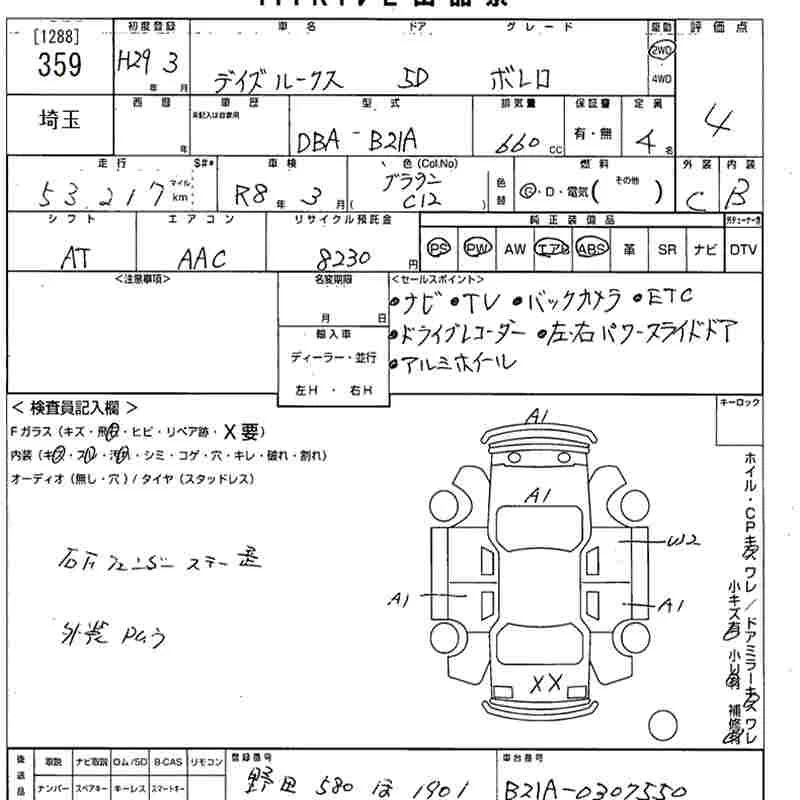 [1288]
359
初度登録 車名 ドア グレード 駆動 評価点
H29 3 デイズルークス 5D ボレロ 2WD 4WD 4
年 月
埼玉 西暦 車歴 型式 排気量 保証書 定員
未記入は自家用
DBA-B21A 660 CC 有・無 4 名
年
走行 S#* 車検 色(Col.No) 燃料 外装 内装
53,217 マイル km R8 年 3 月 ( ブラウン C12 ) 色替 G・D・電気( その他 ) C B
シフト エアコン リサイクル預託金 純正装備品
AT AAC 8230 円 PS PW AW エアB ABS 革 SR ナビ DTV
<注意事項> 名変期限 <セールスポイント>
月 日
•ナビ •TV •バックカメラ •ETC
•ドライブレコーダー •左・右パワースライドドア
•アルミホイール
輸入車
ディーラー・並行
左H ・ 右H
< 検査員記入欄 > キーロック
Fガラス(キズ・飛石・ヒビ・リペア跡・X要)
内装(キズ・スレ・汚れ・シミ・コゲ・穴・キレ・破れ・割れ)
オーディオ(無し・穴)/タイヤ(スタッドレス)
A1
A1
W2
A1
A1
XX
外装
ホイル・CPキズ ワレ/ドアミラーキズ ワレ
小キズ有 小凹有 補修有
後送品 取説 ナビ取説 ロム/SD B-CAS リモコン 登録番号 車台番号
ナンバー スペアキー キーレス スマートキー 野田 580 ほ 1901 B21A-0307550